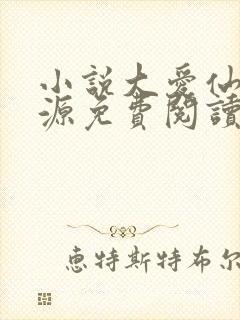 小說大愛仙
源免費閱讀
惠特斯特布尔